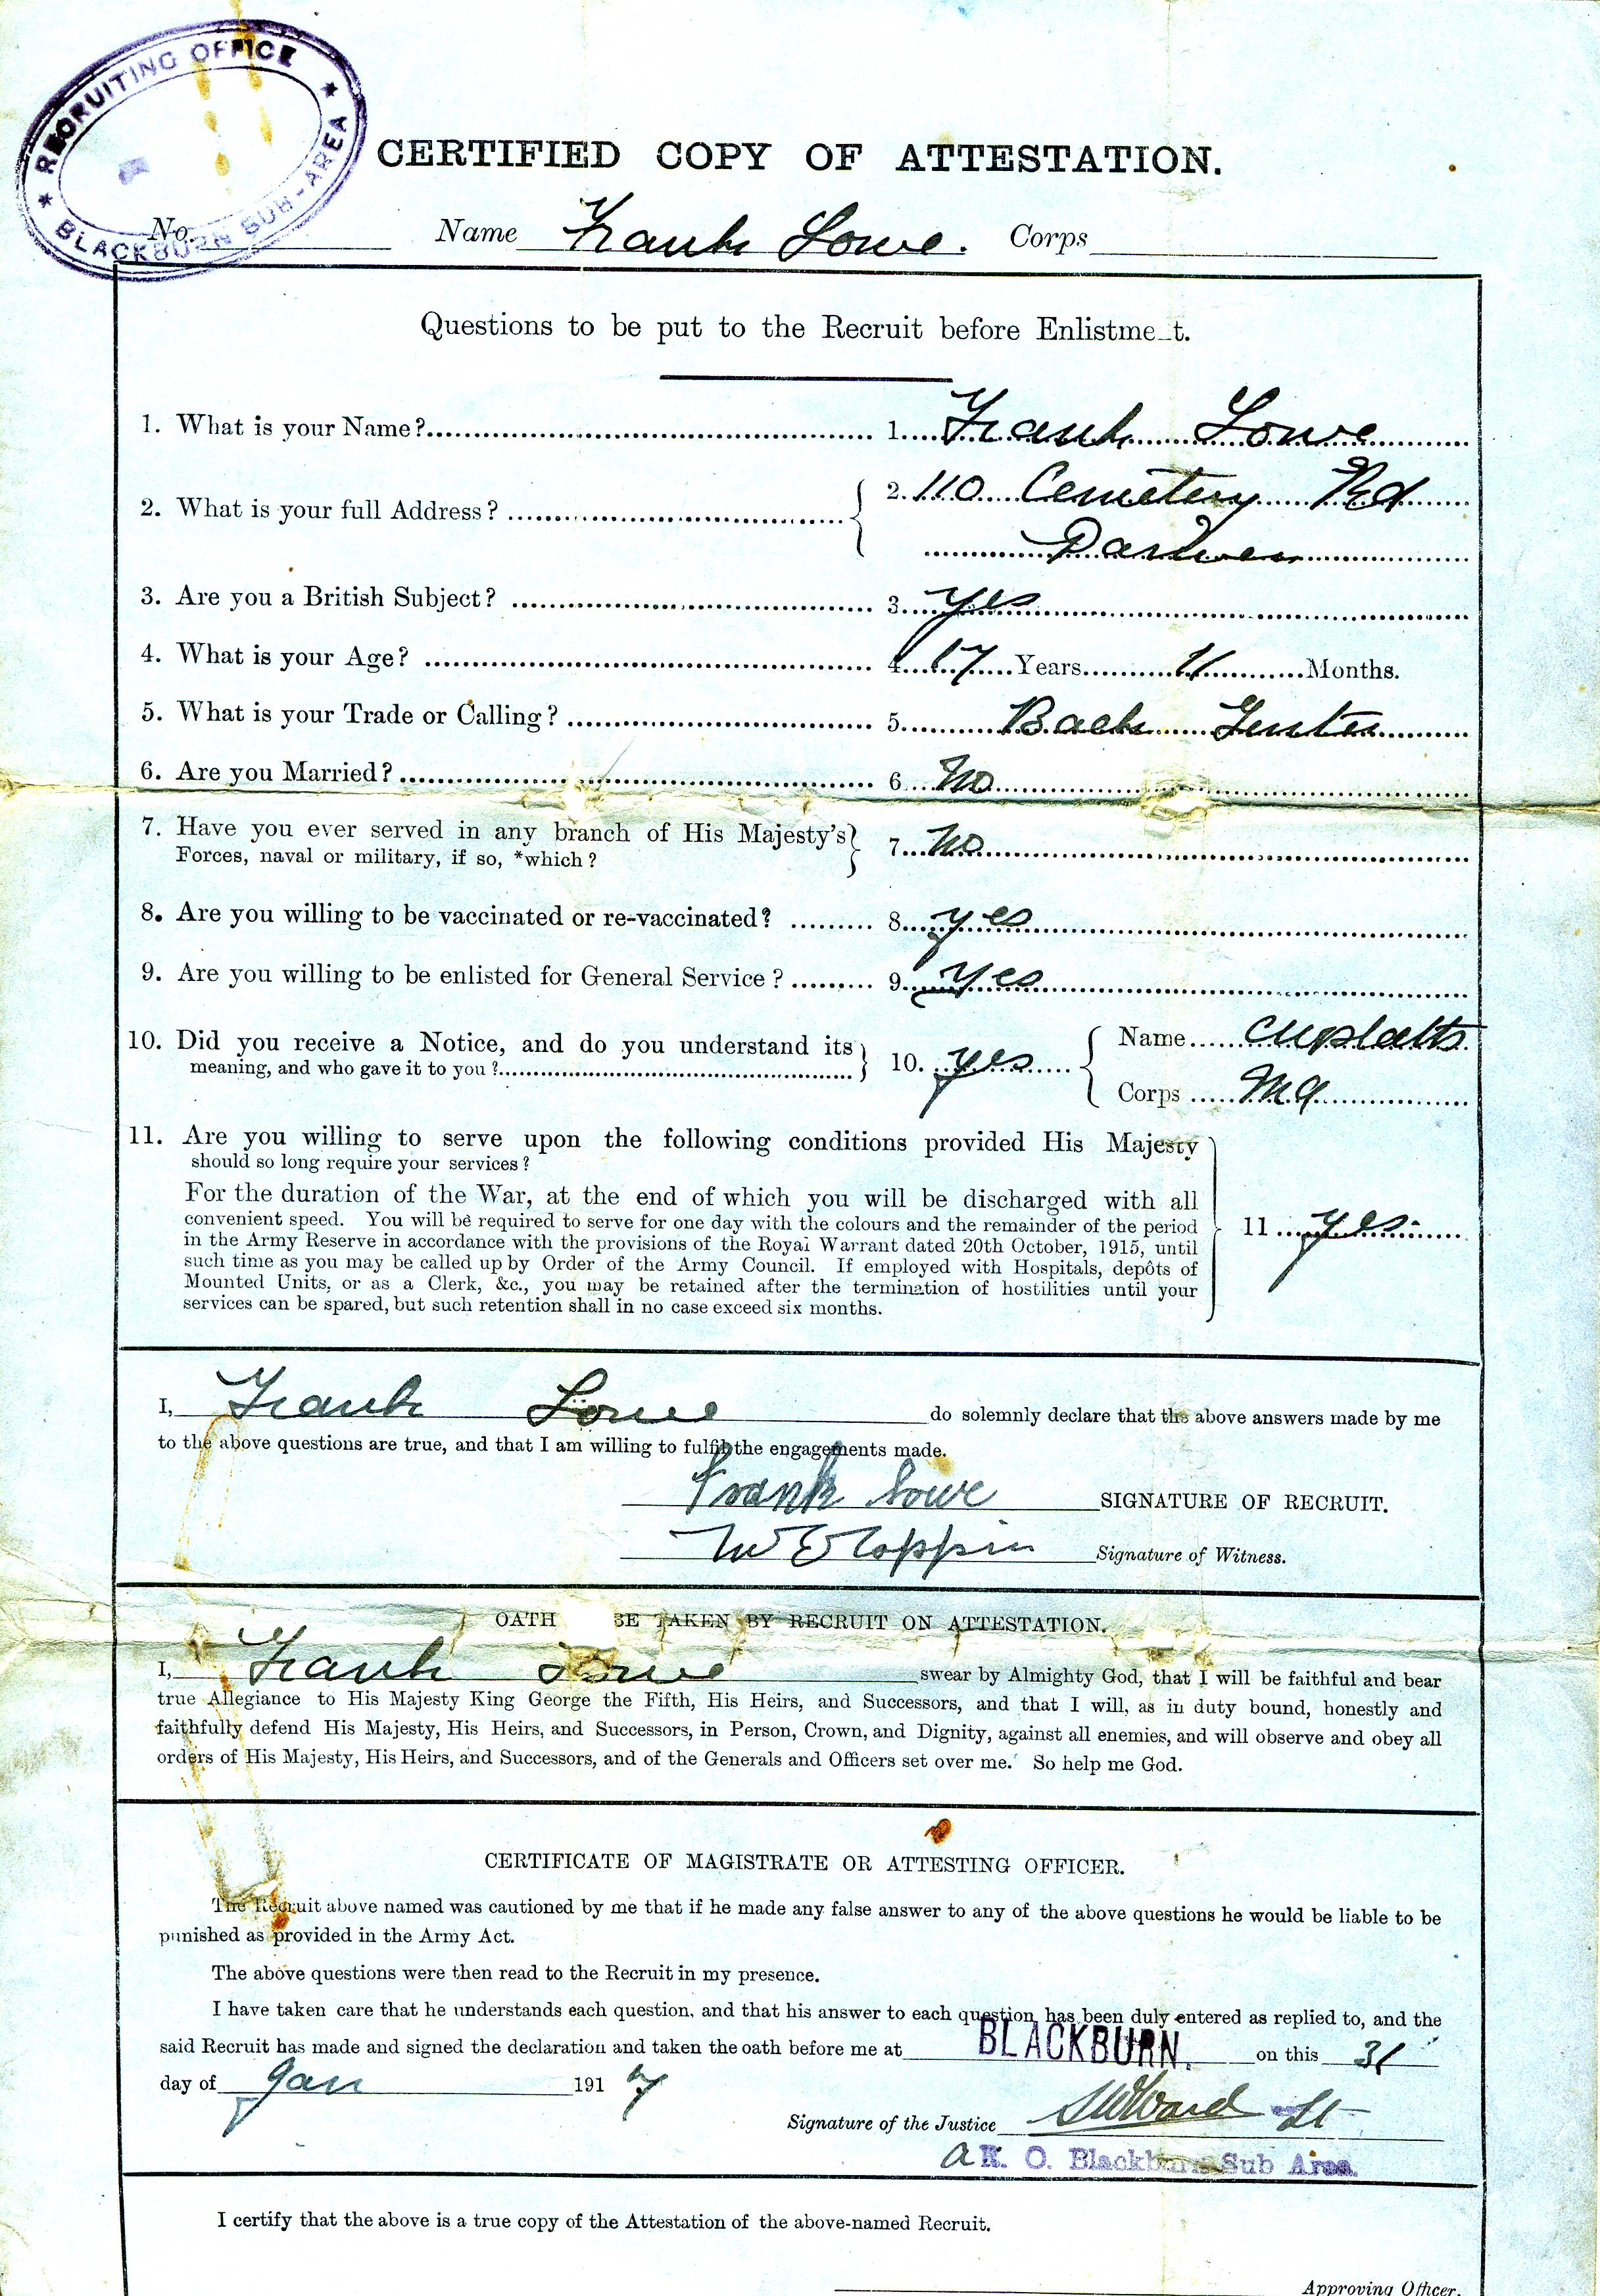 ★ RECRUITING OFFICE ★
BLACKBURN SUB-AREA
CERTIFIED COPY OF ATTESTATION.
No. Name Frank Lowe. Corps
Questions to be put to the Recruit before Enlistme t.
1. What is your Name? 1. Frank Lowe
2. What is your full Address? 2. 110 Cemetery Rd
Darwen
3. Are you a British Subject? 3. yes
4. What is your Age? 4. 17 Years 11 Months.
5. What is your Trade or Calling? 5. Back Tenter
6. Are you Married? 6. No
7. Have you ever served in any branch of His Majesty's 7. No
Forces, naval or military, if so, *which?
8. Are you willing to be vaccinated or re-vaccinated? 8. yes
9. Are you willing to be enlisted for General Service? 9. yes
10. Did you receive a Notice, and do you understand its 10. yes Name
meaning, and who gave it to you? Corps
11. Are you willing to serve upon the following conditions provided His Majesty
should so long require your services?
For the duration of the War, at the end of which you will be discharged with all
convenient speed. You will be required to serve for one day with the colours and the remainder of the period 11 yes
in the Army Reserve in accordance with the provisions of the Royal Warrant dated 20th October, 1915, until
such time as you may be called up by Order of the Army Council. If employed with Hospitals, depôts of
Mounted Units, or as a Clerk, &c., you may be retained after the termination of hostilities until your
services can be spared, but such retention shall in no case exceed six months.
I, Frank Lowe do solemnly declare that the above answers made by me
to the above questions are true, and that I am willing to fulfil the engagements made.
Frank Lowe SIGNATURE OF RECRUIT.
Toppin Signature of Witness.
OATH BE TAKEN BY RECRUIT ON ATTESTATION.
I, Frank Lowe swear by Almighty God, that I will be faithful and bear
true Allegiance to His Majesty King George the Fifth, His Heirs, and Successors, and that I will, as in duty bound, honestly and
faithfully defend His Majesty, His Heirs, and Successors, in Person, Crown, and Dignity, against all enemies, and will observe and obey all
orders of His Majesty, His Heirs, and Successors, and of the Generals and Officers set over me. So help me God.
CERTIFICATE OF MAGISTRATE OR ATTESTING OFFICER.
The Recruit above named was cautioned by me that if he made any false answer to any of the above questions he would be liable to be
punished as provided in the Army Act.
The above questions were then read to the Recruit in my presence.
I have taken care that he understands each question, and that his answer to each question has been duly entered as replied to, and the
said Recruit has made and signed the declaration and taken the oath before me at BLACKBURN. on this 31
day of Jan 1917
Signature of the Justice Ward Lt
a R. O. Blackburn Sub Area.
I certify that the above is a true copy of the Attestation of the above-named Recruit.
Approving Officer.